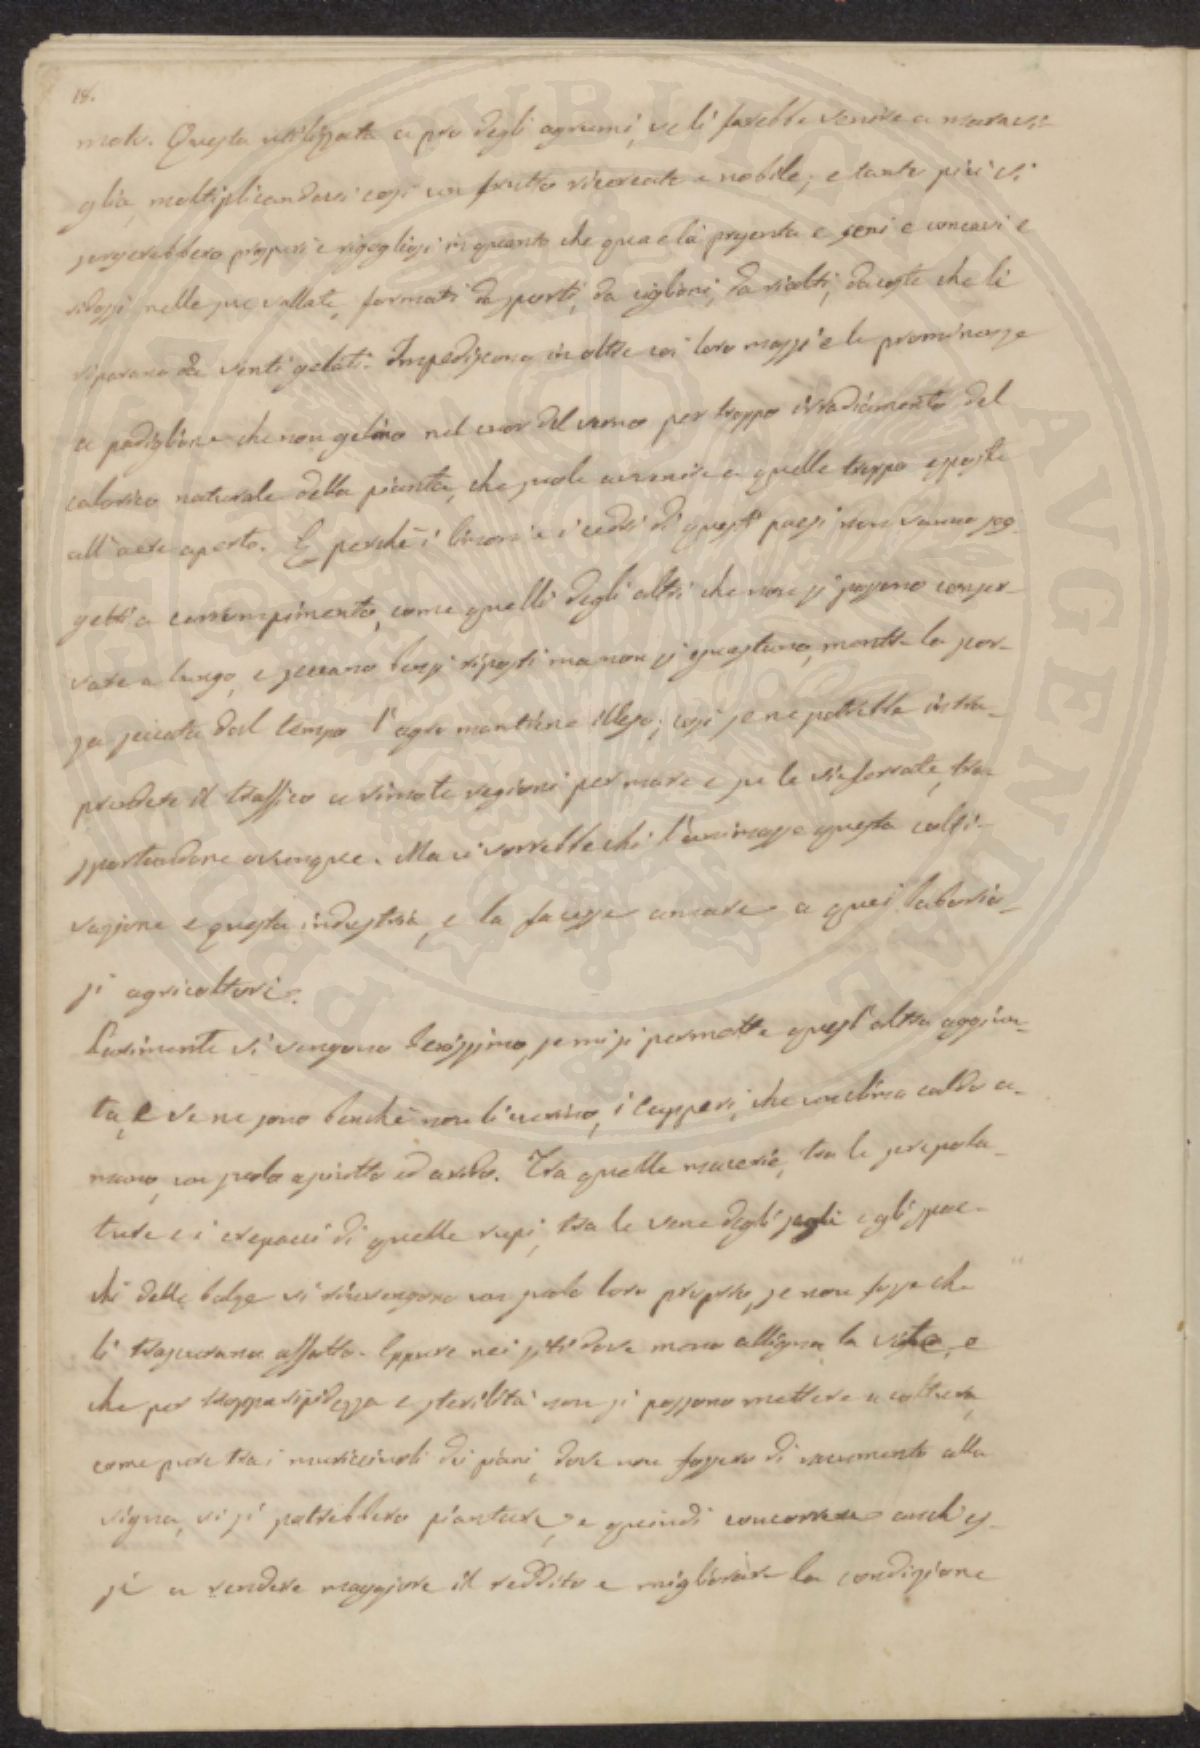 18.
mole. Questa utilizzata a pro degli agrumi, ve li farebbe venire a maravi-
glia, moltiplicandovi così un frutto ricercato e nobile; e tanto più vi
sorgerebbero prosperi e rigogliosi in quanto che qua e là presenta e seni e concavi e
ridossi nelle sue vallate, formati da sporti, da ciglioni, da rialti, da coste che li
riparano da venti gelati. Impediscono in oltre coi loro massi e le prominenze
a padiglione che non gelino nel cuor del verno per troppo irradiamento del
calorico naturale della pianta, che suole avvenire a quelle troppo esposte
all'aere aperto. E perchè i limoni e i cedri di questi paesi non vanno sog-
getti a corrompimento, come quelli degli altri che non si possono conser-
vare a lungo, e seccano bensì riposti ma non si guastano, mentre la scor-
za seccata dal tempo l'agro mantiene illeso; così se ne potrebbe intra-
prendere il traffico a rimote regioni per mare e per le vie ferrate, tra-
sportandone ovunque. Ma ci vorrebbe chi l'animasse questa colti-
vazione e questa industria, e la facesse amare a quei laborio-
si agricoltori.
Parimente vi vengono benissimo, se mi si permette quest'altra aggiun-
ta, e ve ne sono benchè non li curino, i capperi, che un clima caldo a-
mano, un suolo asciutto ed arido. Tra quelle macerie, tra le screpola-
ture e i crepacci di quelle rupi, tra le vene degli scogli e gli spac-
chi delle balze vi rinvengono un suolo loro proprio, se non fosse che
li trascurano affatto. Eppure nei siti dove meno alligna la vite, e
che per troppa ripidezza e sterilità non si possono mettere a coltura,
come pure tra i muricciuoli dei piani, dove non fossero di nocumento alla
vigna, vi si potrebbero piantare, e quindi concorrere anch'es-
si a rendere maggiore il reddito e migliorare la condizione